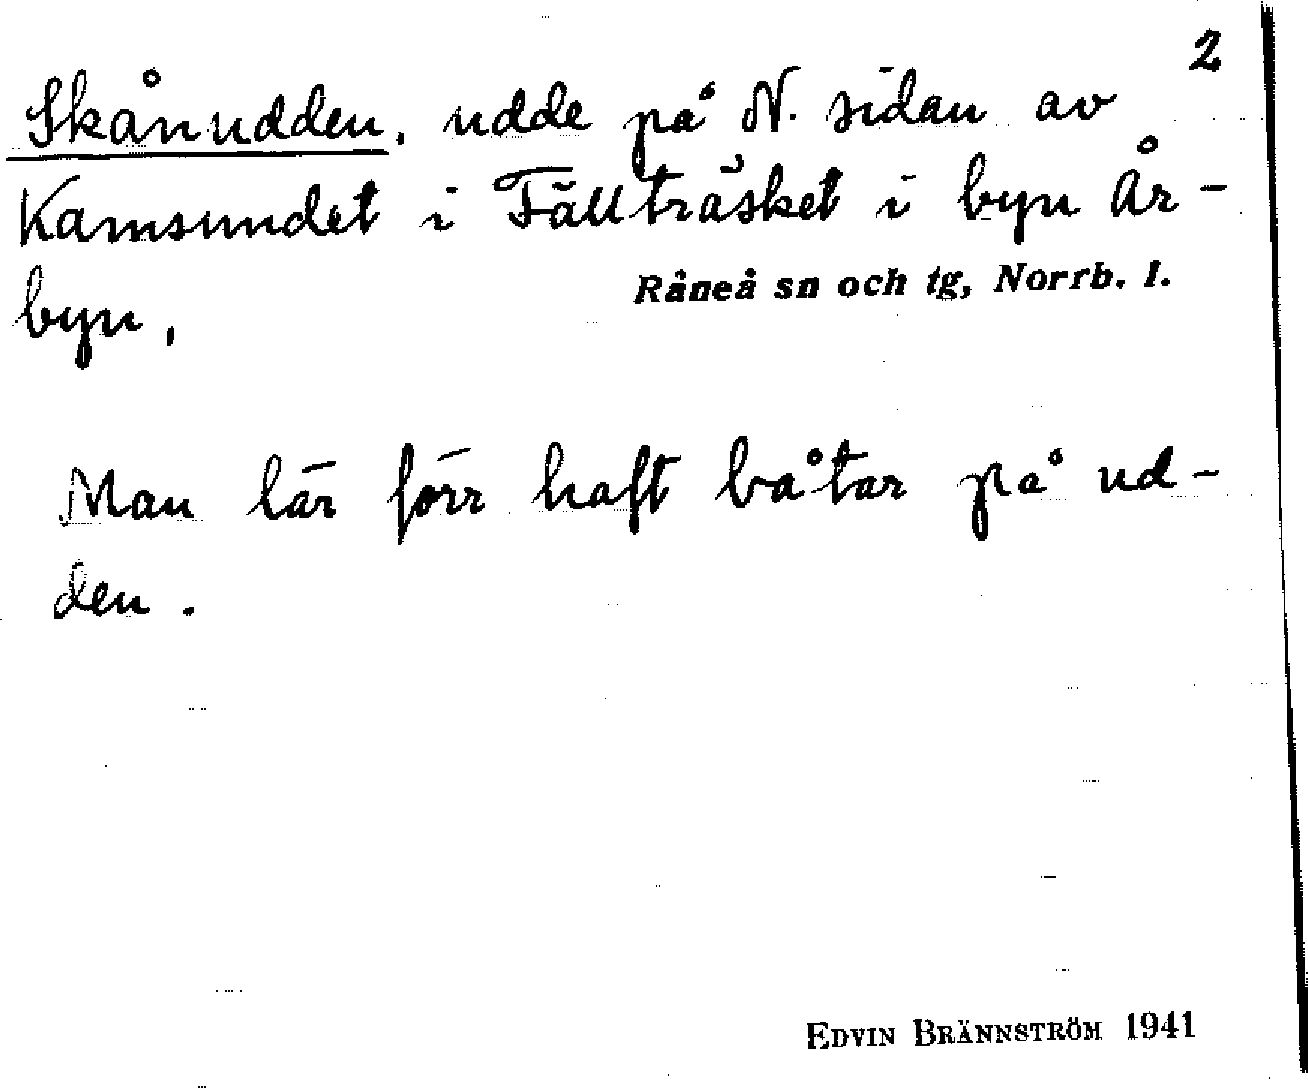 2
Skånudden, udde på N. sidan av
Kamsundet i Fällträsket i byn År-
byn,
Råneå sn och tg, Norrb. l.
Man lär förr haft båtar på ud-
den.
EDVIN BRÄNNSTRÖM 1941